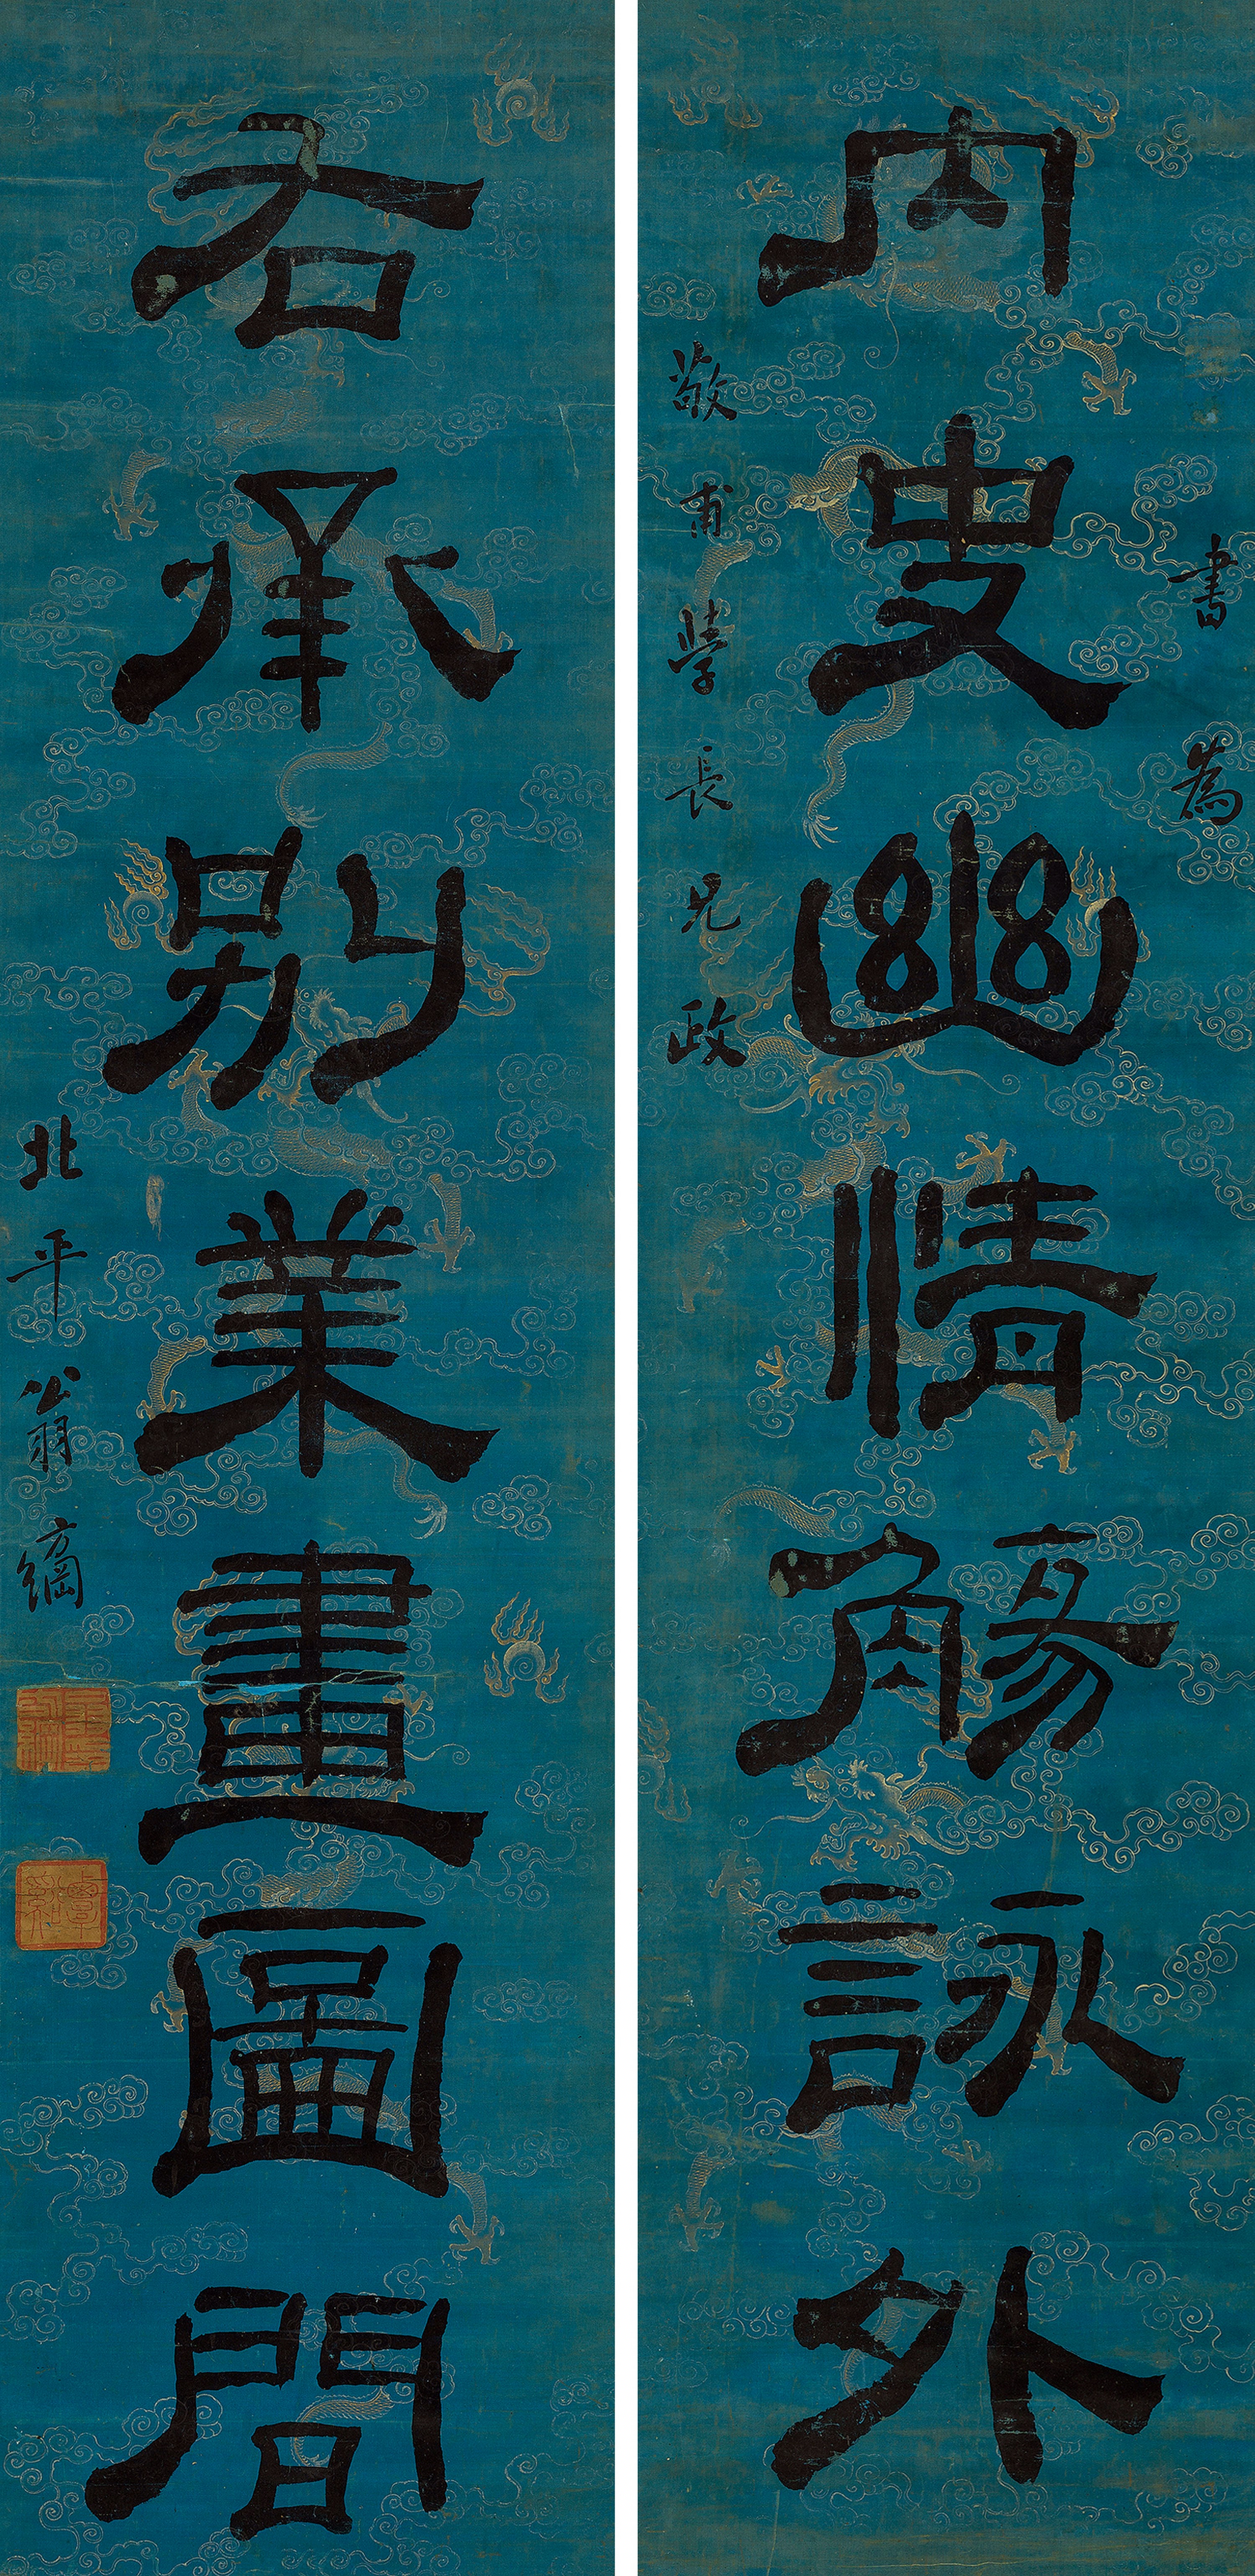 書為
內史幽情觴詠外
敬甫學長兄政
右承別業畫圖間
北平翁方綱